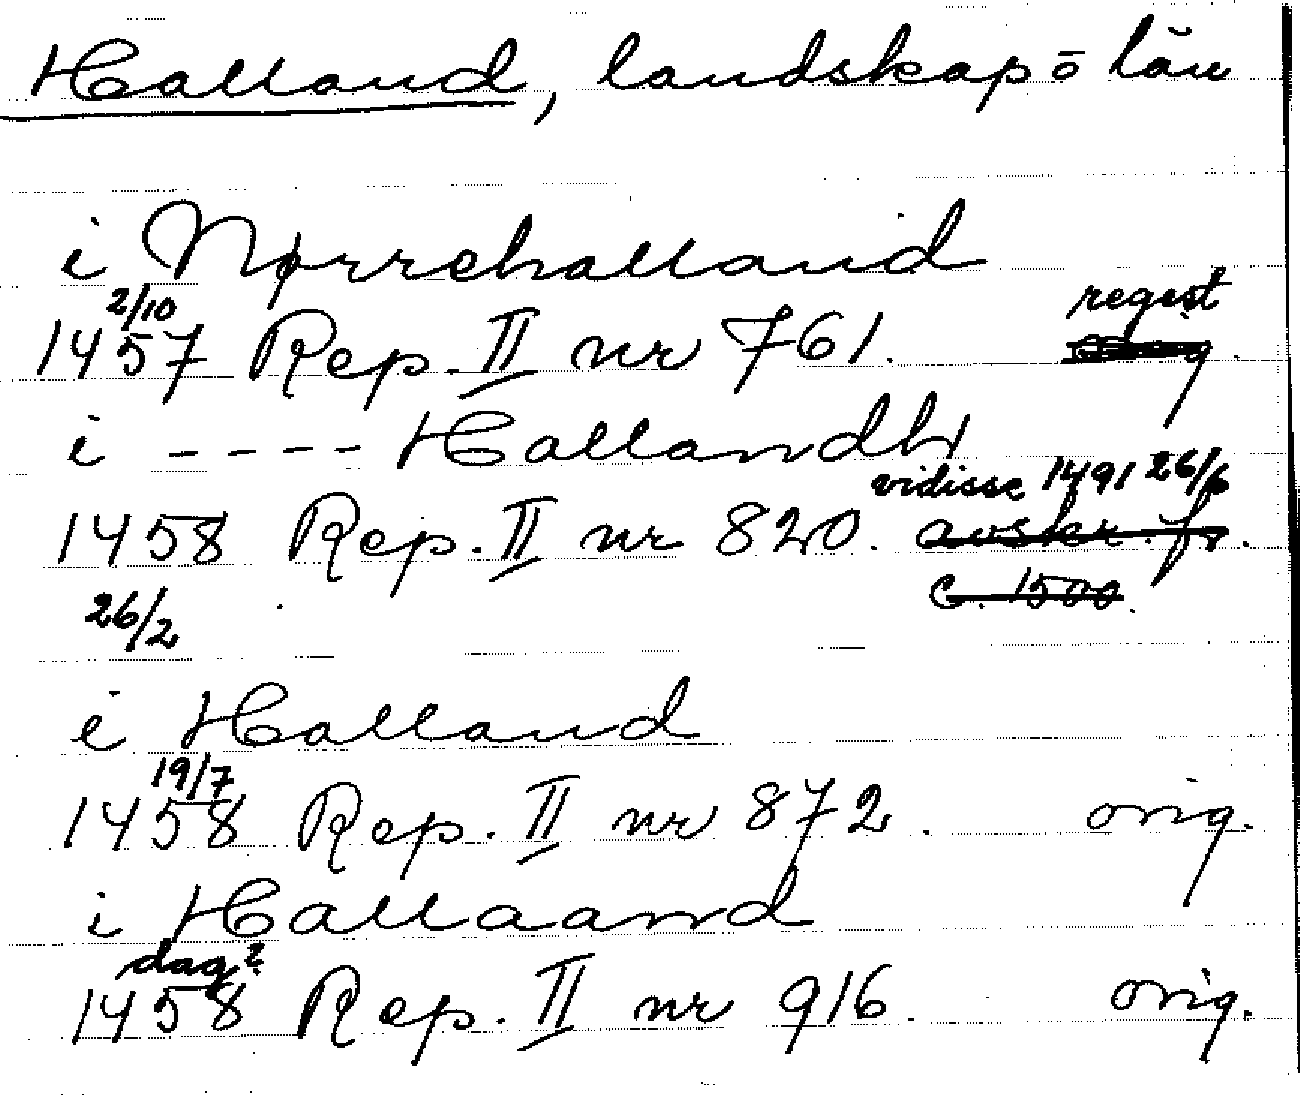 Halland, landskap o län
i Nørrehalland
2/10 regist
1457 Rep. II nr 761. orig.
i - - - - Hallandh
vidisse 1491 26/6
1458 Rep. II nr 820. avskr. fr.
26/2 c. 1500.
i Halland
19/7
1458 Rep. II nr 872. orig.
i Hallaand
dag?
1458 Rep. II nr 916. orig.